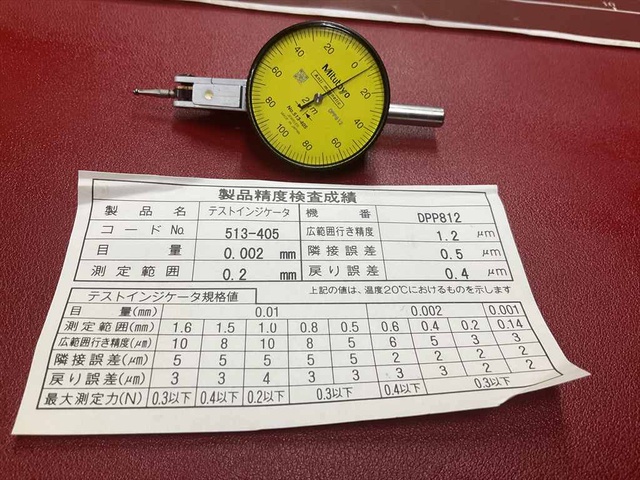 0
20
40
60
80
100
80
60
40
20
Mitutoyo
ANTI-MAGNETIC
2μm
No.513-405
DPP812
製品精度検査成績
製品名 テストインジケータ 機番 DPP812
コードNo. 513-405 広範囲行き精度 1.2 μm
目量 0.002 mm 隣接誤差 0.5 μm
測定範囲 0.2 mm 戻り誤差 0.4 μm
テストインジケータ規格値 上記の値は、温度20℃におけるものを示します
目量(mm) 0.01 0.002 0.001
測定範囲(mm) 1.6 1.5 1.0 0.8 0.5 0.6 0.4 0.2 0.14
広範囲行き精度(μm) 10 8 10 8 5 6 5 3 3
隣接誤差(μm) 5 5 5 5 5 2 2 2 2
戻り誤差(μm) 3 3 4 3 3 3 3 2 2
最大測定力(N) 0.3以下 0.4以下 0.2以下 0.3以下 0.4以下 0.3以下